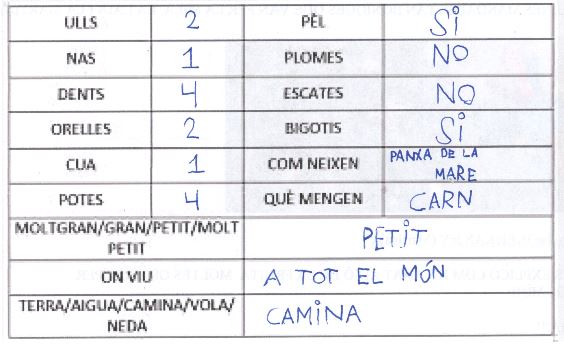 ULLS 2 PÈL Sí
NAS 1 PLOMES NO
DENTS 4 ESCATES NO
ORELLES 2 BIGOTIS Sí
CUA 1 COM NEIXEN PANXA DE LA MARE
POTES 4 QUÈ MENGEN CARN
MOLTGRAN/GRAN/PETIT/MOLT
PETIT
PETiT
ON VIU A TOT EL MÓN
TERRA/AIGUA/CAMINA/VOLA/
NEDA
CAMiNA